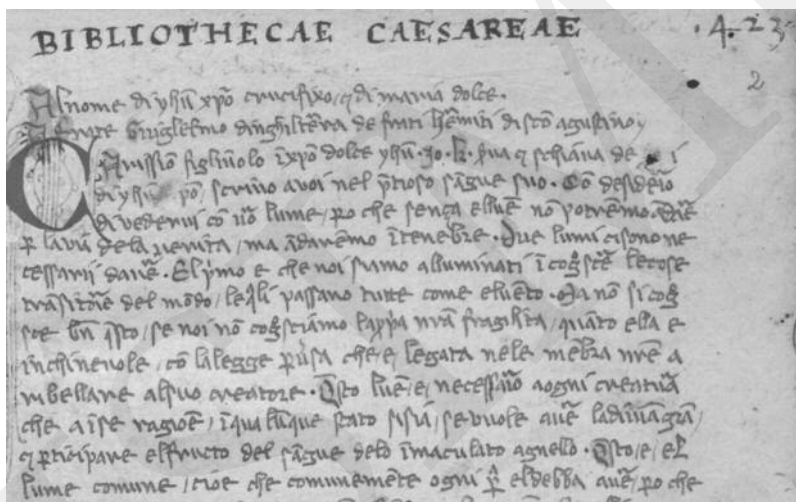 BIBLIOTHECAE CAESAREAE
. 4. 23
2
Al nome di yhu xpo crucifixo, et di maria dolce.
A frate Guiglielmo dinghilterra de frati heremiti di sco agustino,
Carissio figliuolo i xpo dolce yhu. Io. k. s'ua et schiava de i
di yhu po, scrivo a voi nel ptioso sague suo. Co desideio
di vedervi co uo lume, po che sença el lue no potremo adare
p la via dela verita, ma adaremo i tenebre. Due lumi ci sono ne
cessarii davere. El pimo e che noi siamo alluminati i cogscere le cose
transitorie del modo, le qli passano tutte come el veto. Ma no si cog
sce bn qsto, se noi no cogsciamo la ppa nra fragilita, quato ella e
inchinevole, co la legge pversa che, e, legata nele mebra nre a
ribellare al suo creatore. Qsto lue, e, necessaio a ogni creatura
che a i se ragioe, i qualuque stato si sia, se vuole avere la divina gra,
et pticipare el fructo del sague delo imaculato agnello. Qsto, e, el
lume comune, cioe che comunemete ogni p el debba avere, po che